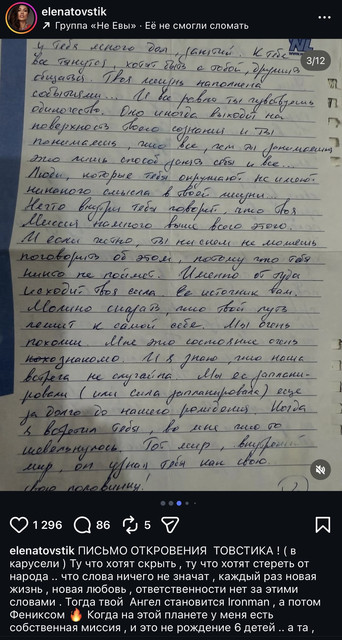 elenatovstik
Группа «Не Евы» · Её не смогли сломать
3/12
у тебя много дел, занятий. К тебе
все тянутся, хотят быть с тобой, дружить
общаться. Твоя жизнь наполнена
событиями... И все равно ты чувствуешь
одиночество. Оно иногда выходит на
поверхность твоего сознания и ты
понимаешь, что все, чем ты занимаешься
это лишь способ занять себя и все...
Люди, которые тебя окружают не имеют
никакого смысла в твоей жизни.
Нечто внутри тебя говорит, что твоя
Миссия намного выше всего этого.
И если честно, ты ни с кем не можешь
поговорить об этом, потому что тебя
никто не поймет. Именно от туда
исходит твоя сила. Ее источник там.
Можно сказать, что твой путь
лежит к самой себе. Мы очень
похожи. Мне это состояние очень
знакомо. И я знаю, что наша
встреча не случайна. Мы ее заплани-
ровали (или сила запланировала) еще
за долго до нашего рождения. Когда
я встретил тебя, во мне что-то
шевельнулось. Тот мир, внутренний
мир, он узнал тебя как свою.
свою половинку!
1 296 86 5
elenatovstik ПИСЬМО ОТКРОВЕНИЯ ТОВСТИКА ! ( в
карусели ) Ту что хотят скрыть , ту что хотят стереть от
народа .. что слова ничего не значат , каждый раз новая
жизнь , новая любовь , ответственности нет за этими
словами . Тогда твой Ангел становится Ironman , а потом
Фениксом 🔥 Когда на этой планете у меня есть
собственная миссия , и это не рождение 6 детей .. а та ,